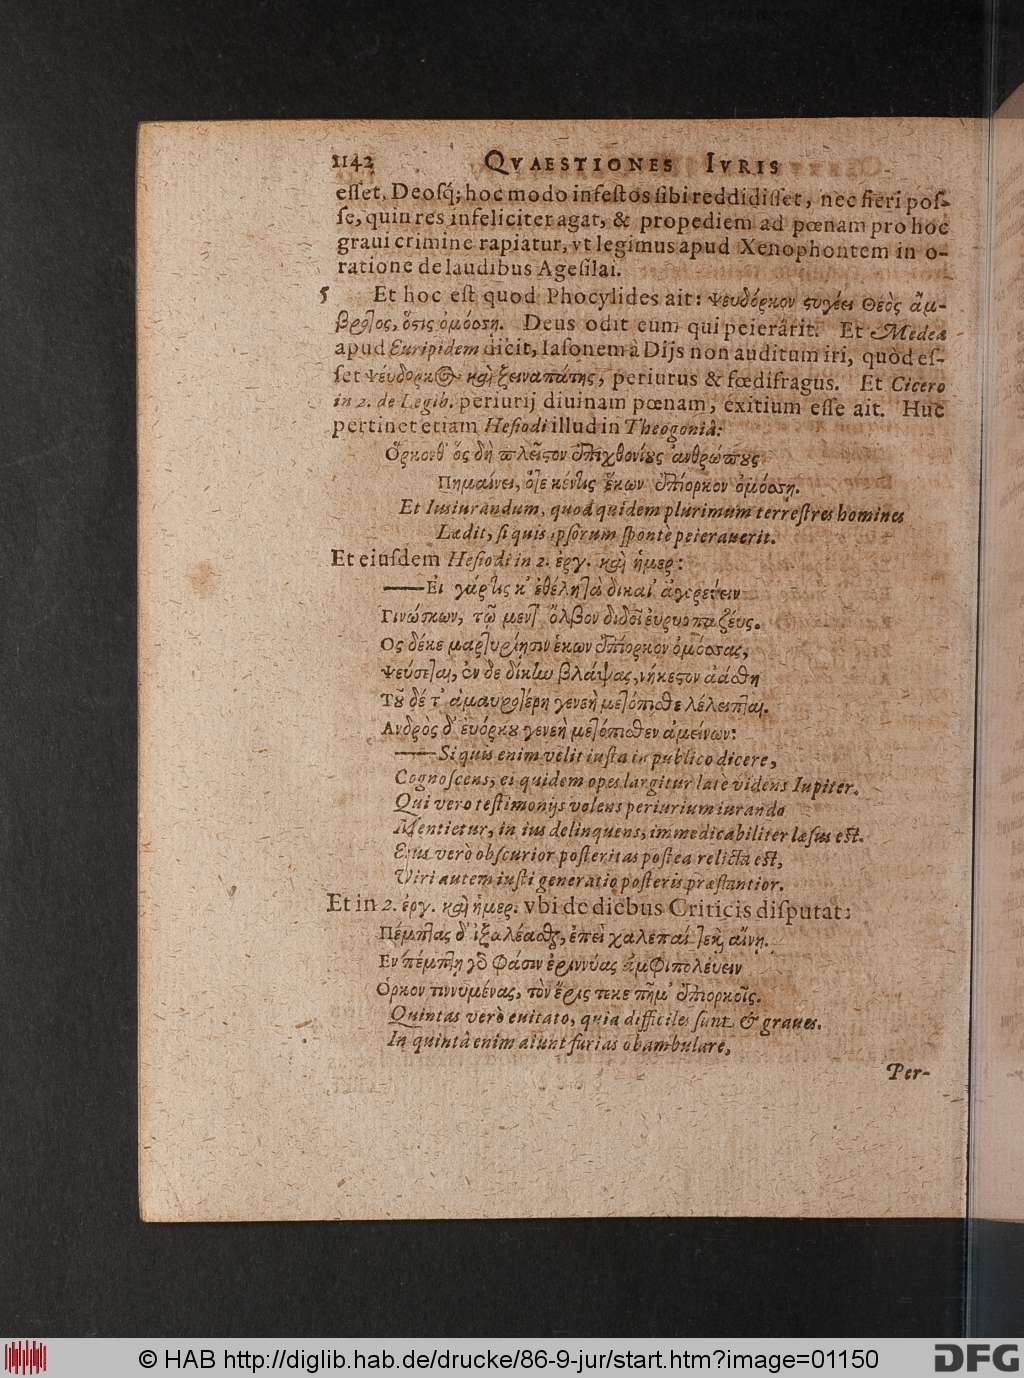 1142 QVAESTIONES IVRIS
esset, Deosq́; hoc modo infestos sibi reddidisset, nec fieri pos-
se, quin res infeliciter agat, & propediem ad pœnam pro hoc
graui crimine rapiatur, vt legimus apud Xenophontem in o-
ratione de laudibus Agesilai.
5 Et hoc est quod Phocylides ait: Ψευδόρκον ϛυγέει Θεὸς ἄμ-
βροτος, ὅϛις ὀμόοση. Deus odit eum qui peierârit. Et Medea
apud Euripidem dicit, Iasonem à Dijs non auditum iri, quòd es-
set ψέυδορκος καὶ ξειναπάτης, periurus & fœdifragus. Et Cicero
in 2. de Legib. periurij diuinam pœnam, exitium esse ait. Huc
pertinet etiam Hesiodi illud in Theogoniâ:
Ὅρκονθ᾽ ὅς δὴ πλεῖϛον ἐπιχθονίους ἀνθρώπους
Πημαίνει, ὅτε κέντις ἕκων ἐπίορκον ὀμόοση.
Et Iusiurandum, quod quidem plurimum terrestres homines
Lædit, si quis ipsorum spontè peierauerit.
Et eiusdem Hesiodi in 2. ἐργ. καὶ ἡμερ:
—— Εἰ γάρτις κ᾽ ἐθέλῃ τὰ δικαι᾽ ἀγορεύειν
Γινώσκων, τῷ μεντ᾽ ὄλβον διδοῖ ἐυρυοπα ζέυς.
Ος δέκε μαρτυρίησιν ἑκων ἐπίορκον ὀμόσσας,
Ψεύσεται, ἐν δε δίκην βλάψας, νήκεϛον ἀάσθη
Τοῦ δέ τ᾽ ἀμαυροτέρη γενεὴ μετόπισθε λέλειπται.
Ανδρὸς δ᾽ ἐυόρκου γενεὴ μετόπισθεν ἀμείνων:
—— Si quis enim velit iusta in publico dicere,
Cognoscens, ei quidem opes largitur latè videns Iupiter.
Qui vero testimonijs volens periurium iurando
Mentietur, in ius delinquens, immedicabiliter læsus est.
Eius verò obscurior posteritas postea relicta est,
Viri autem iusti generatio posteris præstantior.
Et in 2. ἐργ. καὶ ἡμερ. vbi de diebus Criticis disputat:
Πέμπτας δ᾽ ἐξαλέασθαι, ἐπεὶ χαλεπαί τεκ αἴνη.
Εν πέμπτῃ γὸ Φάσιν ἐριννύας ἀμΦιπολέυειν
Ὁρκον τιννυμένας, τὸν ἔρις τεκε πῆμ᾽ ἐπιορκοῖς.
Quintas verò euitato, quia difficiles sunt & graues.
In quintâ enim aiunt furias obambulare,
Per-
© HAB http://diglib.hab.de/drucke/86-9-jur/start.htm?image=01150
DFG